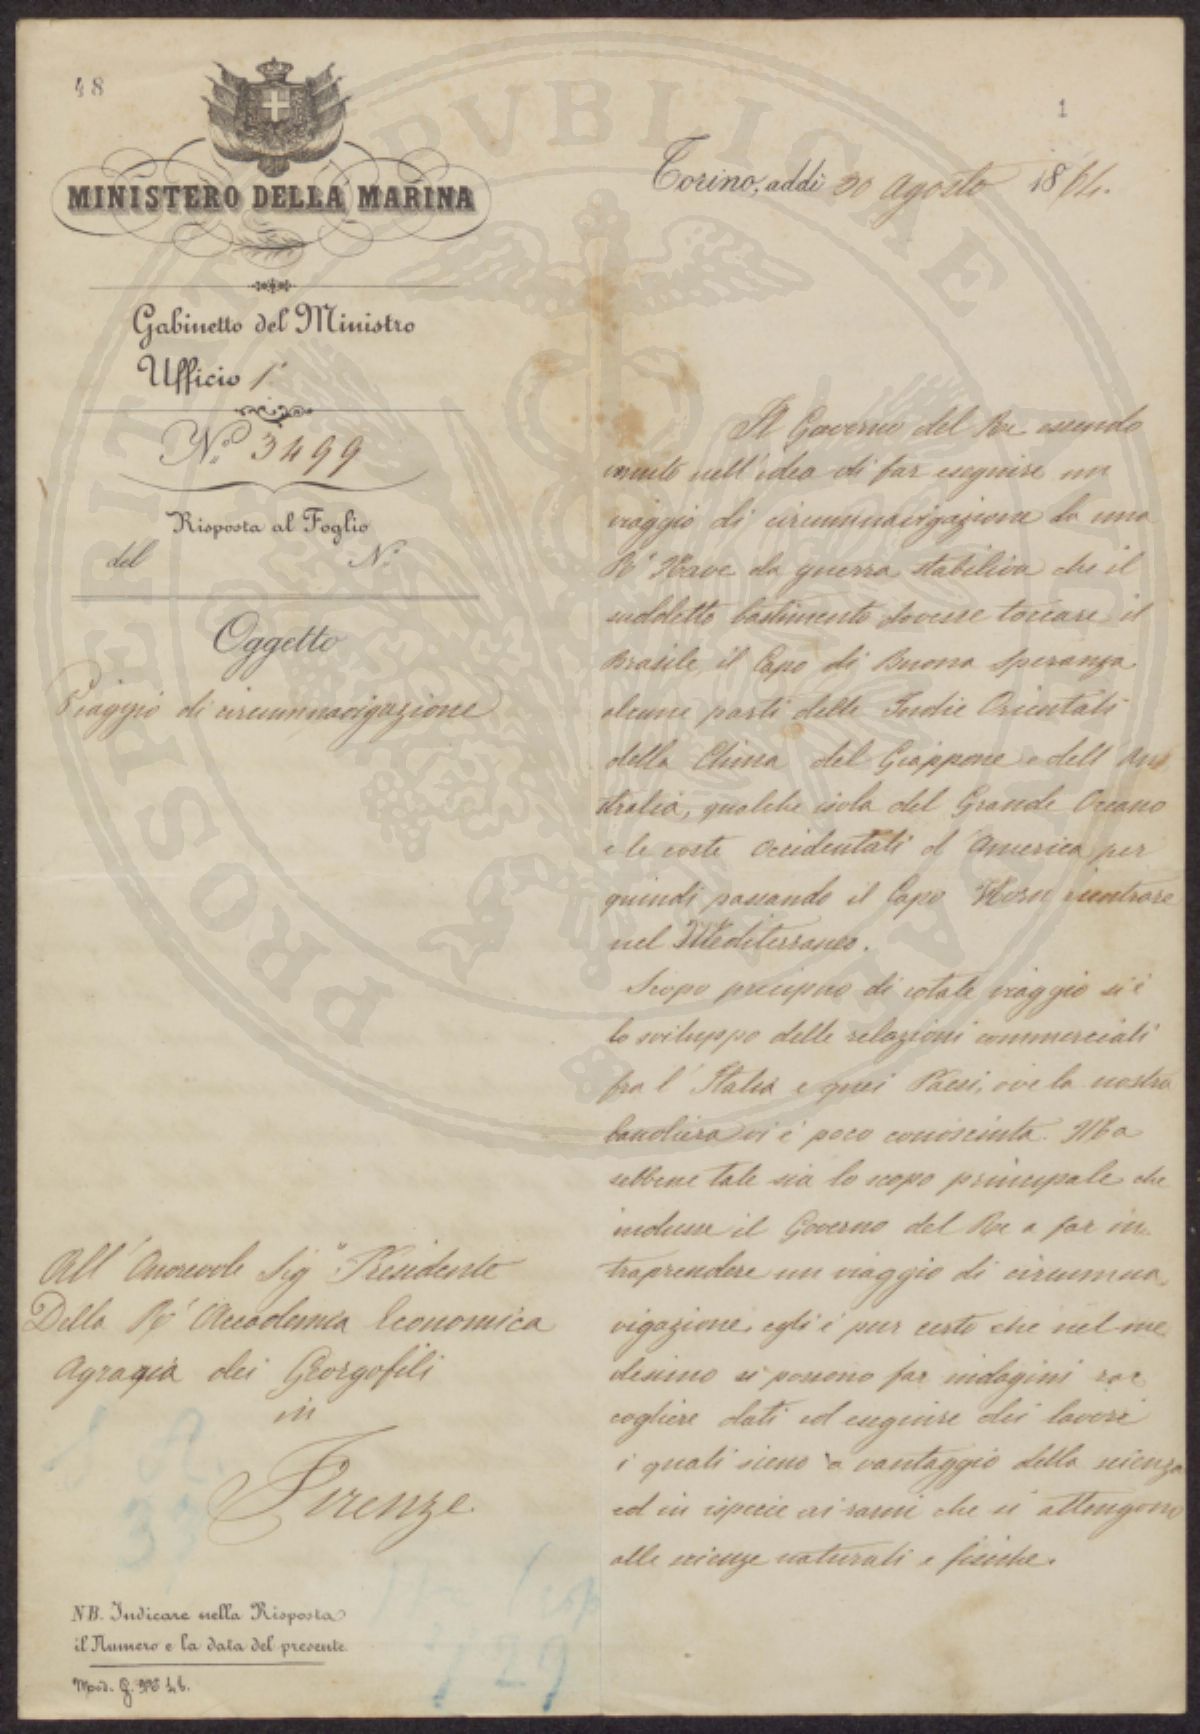 48
1
MINISTERO DELLA MARINA
Torino, addì 30 Agosto 1864.
Gabinetto del Ministro
Ufficio 1°
N.° 3499
Risposta al Foglio
del N.°
Oggetto
Viaggio di circumnavigazione
Il Governo del Re essendo
venuto nell'idea di far eseguire un
viaggio di circumnavigazione da una
R.a Nave da guerra, stabiliva che il
suddetto bastimento dovesse toccare il
Brasile, il Capo di Buona Speranza
alcune parti delle Indie Orientali
della China del Giappone e dell'Au
stralia, qualche isola del Grande Oceano
e le coste Occidentali d'America per
quindi passando il Capo Horn rientrare
nel Mediterraneo.
Scopo precipuo di cotale viaggio si è
lo sviluppo delle relazioni commerciali
fra l'Italia e quei Paesi, ove la nostra
bandiera vi è poco conosciuta. Ma
sebbene tale sia lo scopo principale che
indusse il Governo del Re a far in
traprendere un viaggio di circumna
vigazione, egli è pur certo che nel me
desimo si possono far indagini rac
cogliere dati ed eseguire dei lavori
i quali sieno a vantaggio della scienza
ed in ispecie ai rami che si attengono
alle scienze naturali e fisiche.
All'Onorevole Sig.r Presidente
Della R.a Accademia Economica
Agraria dei Georgofili
in
Firenze
NB. Indicare nella Risposta
il Numero e la data del presente.
Mod. G. N.°
PROSPERITATI PUBLICAE AUGENDAE